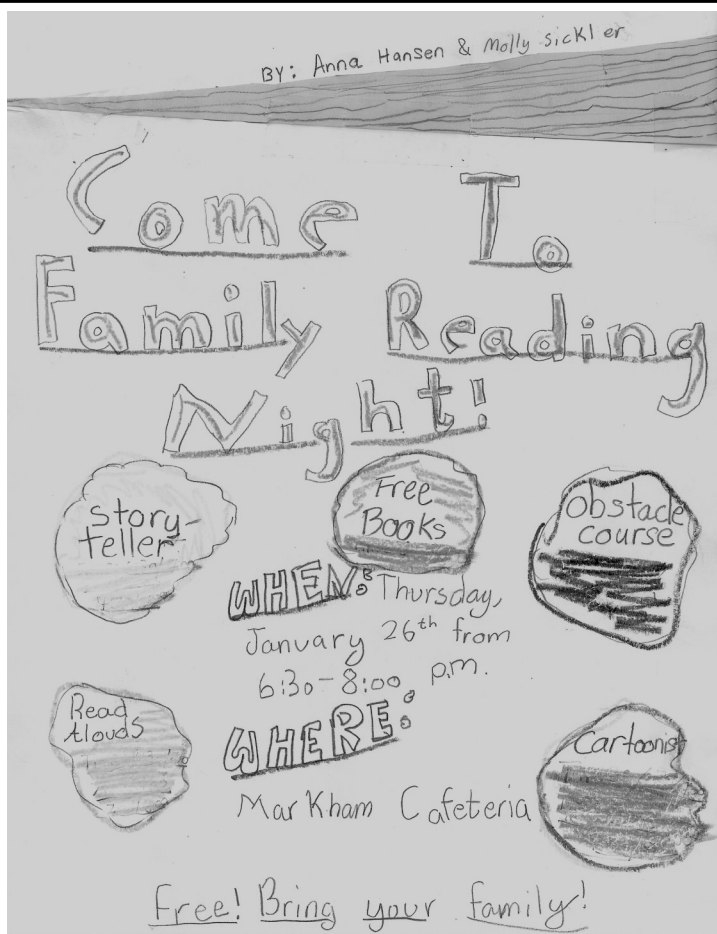 BY: Anna Hansen & Molly Sickler
Come To
Family Reading
Night!
Story-
teller
Free
Books
Obstacle
course
WHEN: Thursday,
January 26th from
6:30-8:00 p.m.
Read
Alouds
WHERE:
Cartoonist
Markham Cafeteria
Free! Bring your family!